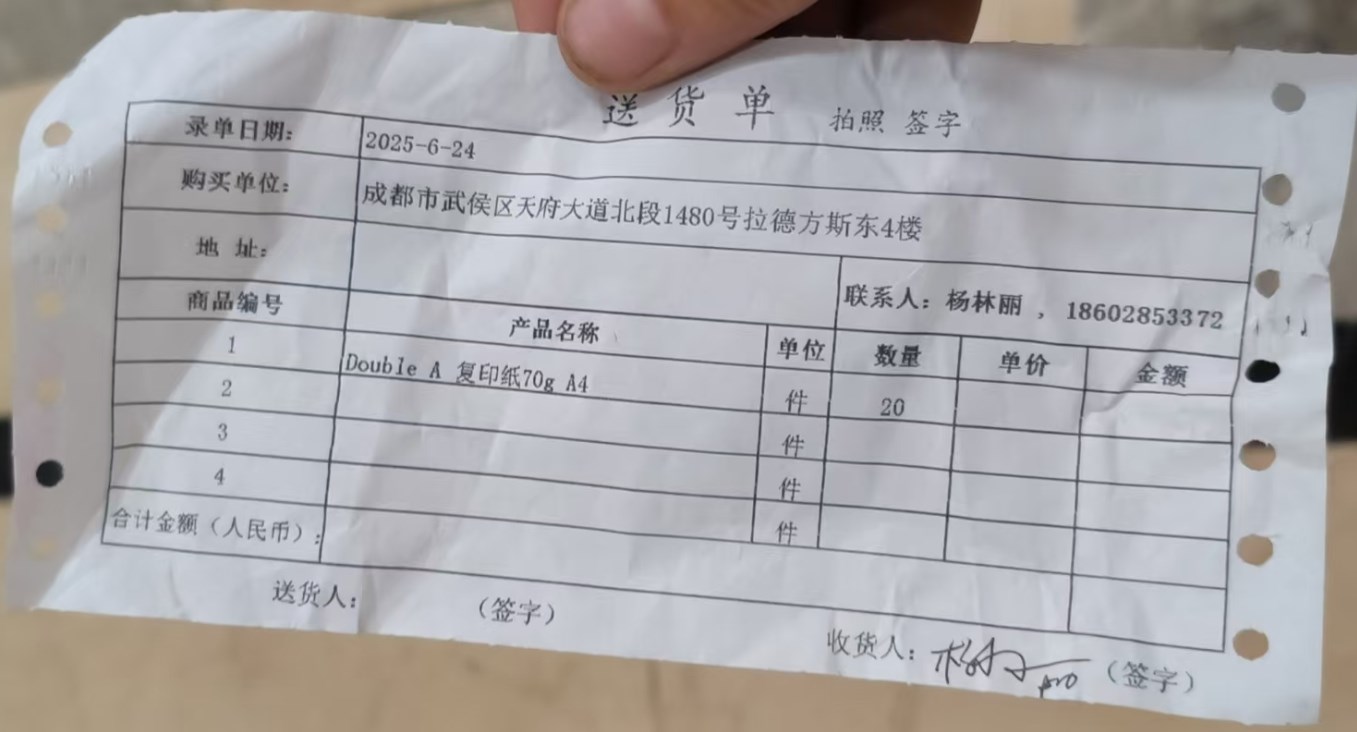 送货单 拍照 签字
录单日期: 2025-6-24
购买单位: 成都市武侯区天府大道北段1480号拉德方斯东4楼
地 址: 联系人: 杨林丽 , 18602853372
商品编号 产品名称 单位 数量 单价 金额
1 Double A 复印纸70g A4 件 20
2 件
3 件
4 件
合计金额(人民币):
送货人: (签字) 收货人: (签字)